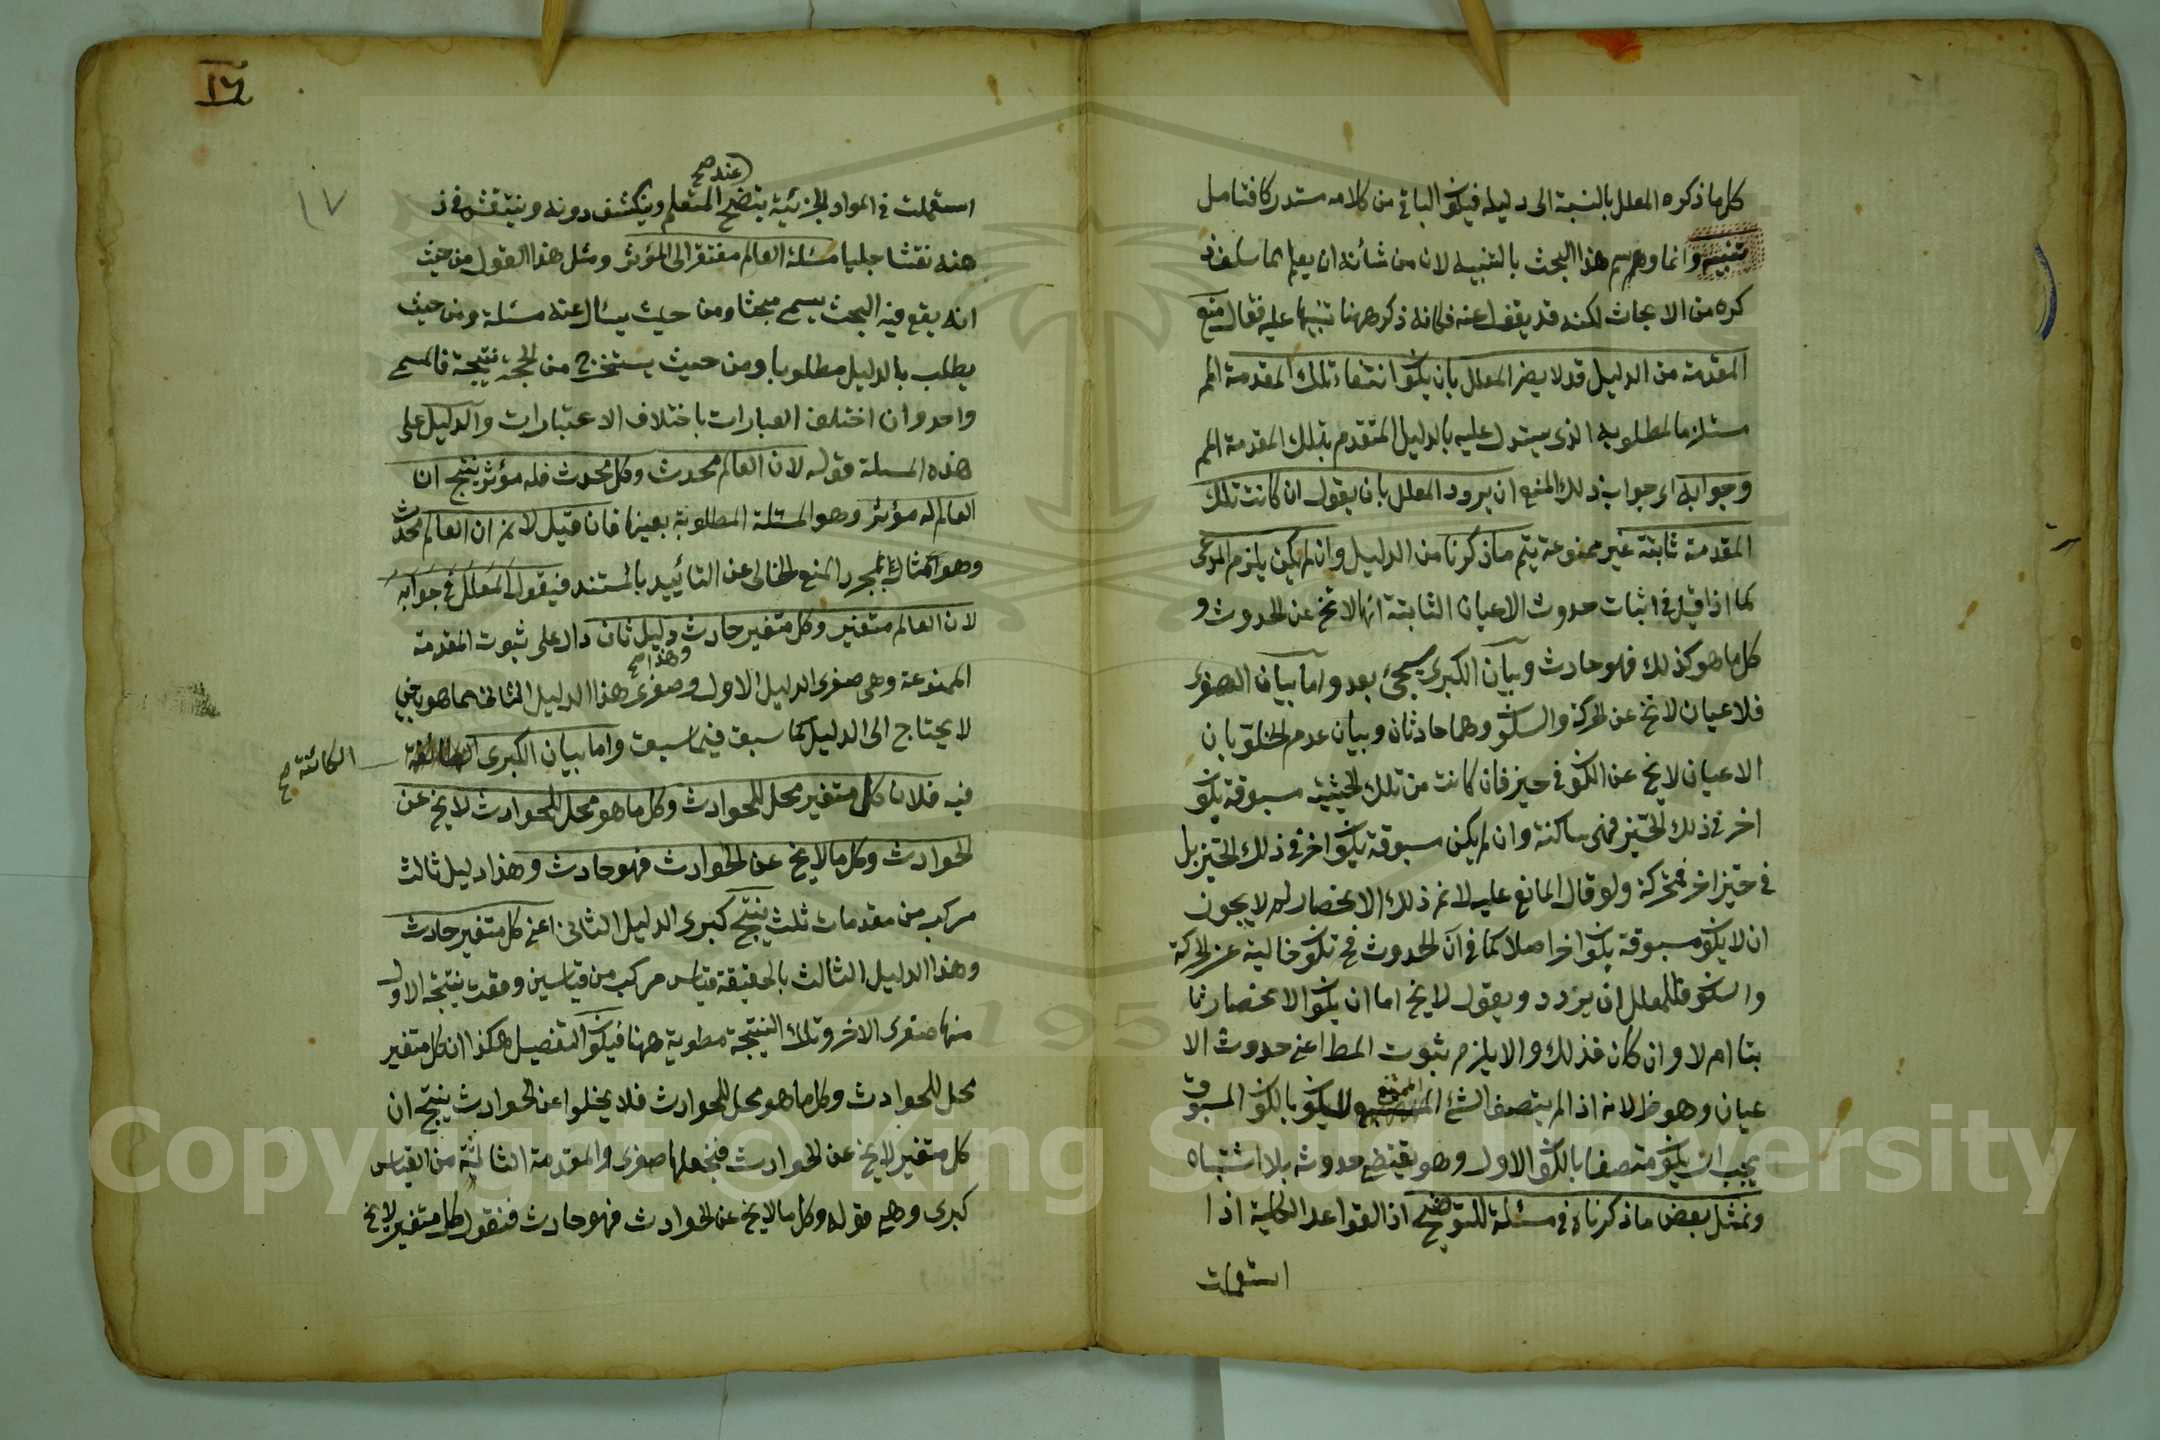 كل ما ذكره المعلل بالنسبة الى دليله فيكون الباقي من كلامه مستدركا فتامل
تنبيه وانما وسم هذا البحث بالتنبيه لان من شأنه ان يعلم مما سلف ذ
كره من الابحاث لكنه قد يغفل عنه فكانه ذكر ههنا تنبيها عليه فقال منع
المقدمة من الدليل قد لا يضر المعلل بان يكون انتفاء تلك المقدمة المم
مستلزما لمطلوبه الذى يستدل عليه بالدليل المتقدم بتلك المقدمة المم
وجوابه اى جواب ذلك المنع ان يردد المعلل بان يقول ان كانت تلك
المقدمة ثابتة غير ممنوعة يتم ما ذكرنا من الدليل وان لم يكن يلزم المدعى
كما اذا قيل فى اثبات حدوث الاعيان الثابتة انها لا تخ عن الحدوث و
كل ما هو كذلك فهو حادث وبيان الكبرى سيجئ بعد واما بيان الصغرى
فلاعيان لا تخ عن الحركة والسكون وهما حادثان وبيان عدم الخلو بان
الاعيان لا يخ عن الكون فى حيز فان كانت من تلك الحيثية مسبوقة بكون
اخر فى ذلك الحيز فهى ساكنة وان لم يكن مسبوقة بكون اخر فى ذلك الحيز بل
فى حيز اخر فمتحركة ولو قال المانع عليه لا نم ذلك الانحصار لم لا يجوز
ان لا يكون مسبوقة بكون اخر اصلا كما فى آن الحدوث فح تكون خالية عن الحركة
والسكون فللمعلل ان يردد ويقول لا يخ اما ان يكون الانحصار ثا
بتا ام لا وان كان فذلك والا يلزم ثبوت المط اعنى حدوث الا
عيان وهو ظ لانه اذا لم يتصف الشئ الممنوع بالكون المسبوق
يجب ان يكون متصفا بالكون الاول وهو يقتضى حدوثه بلا اشتباه
ونمثل بعض ما ذكرناه فى مسئلة للتوضيح اذ القواعد الكلية اذا
استعملت
١٦
١٧
عند صح
استعملت فى المواد الجزئية يتضح المتعلم وينكشف دونه وينتقش فى ذ
هنه نقشا جليا مسئلة العالم مفتقر الى المؤثر ومثل هذا القول من حيث
انه يقع فيه البحث يسمى مبحثا ومن حيث يسئال عنه مسئلة ومن حيث
يطلب بالدليل مطلوبا ومن حيث يستخرج من الحجة نتيجة فالمسمى
واحد وان اختلف العبارات باختلاف الاعتبارات والدليل على
هذه المسئلة قوله لان العالم محدث وكل محدث فله مؤثر ينتج ان
العالم له مؤثر وهو المسئلة المطلوبة بعينها فان قيل لا نم ان العالم محدث
وهو امثال لمجرد المنع الخالى عن التأييد بالمستند فيقول المعلل فى جوابه
لان العالم متغير وكل متغير حادث دليل ثان دال على ثبوت المقدمة
وهذا صح
الممنوعة وهى صغرى الدليل الاول وصغرى هذا الدليل الثانى مما هو
لا يحتاج الى الدليل كما سبق فيما سبق واما بيان الكبرى
الكائنة صح
فيه فلان كل متغير محل للحوادث وكل ما هو محل للحوادث لا يخ عن
الحوادث وكل ما لا يخ عن الحوادث فهو حادث وهذا دليل ثالث
مركب من مقدمات ثلث ينتج كبرى الدليل الثانى اعنى كل متغير حادث
وهذا الدليل الثالث بالحقيقة قياس مركب من قياسين وقعت نتيجة الاول
منهما صغرى الاخر وتلك النتيجة مطوية ههنا فيكون التفصيل هكذا ان كل متغير
محل للحوادث وكل ما هو محل للحوادث فلا يخلوا عن الحوادث ينتج ان
كل متغير لا يخ عن الحوادث فنجعلها صغرى والمقدمة الثالثة من القياس
كبرى وهى قوله وكل ما لا يخ عن الحوادث فهو حادث فنقول كل متغير لا يخ
Copyright © King Saud University
195